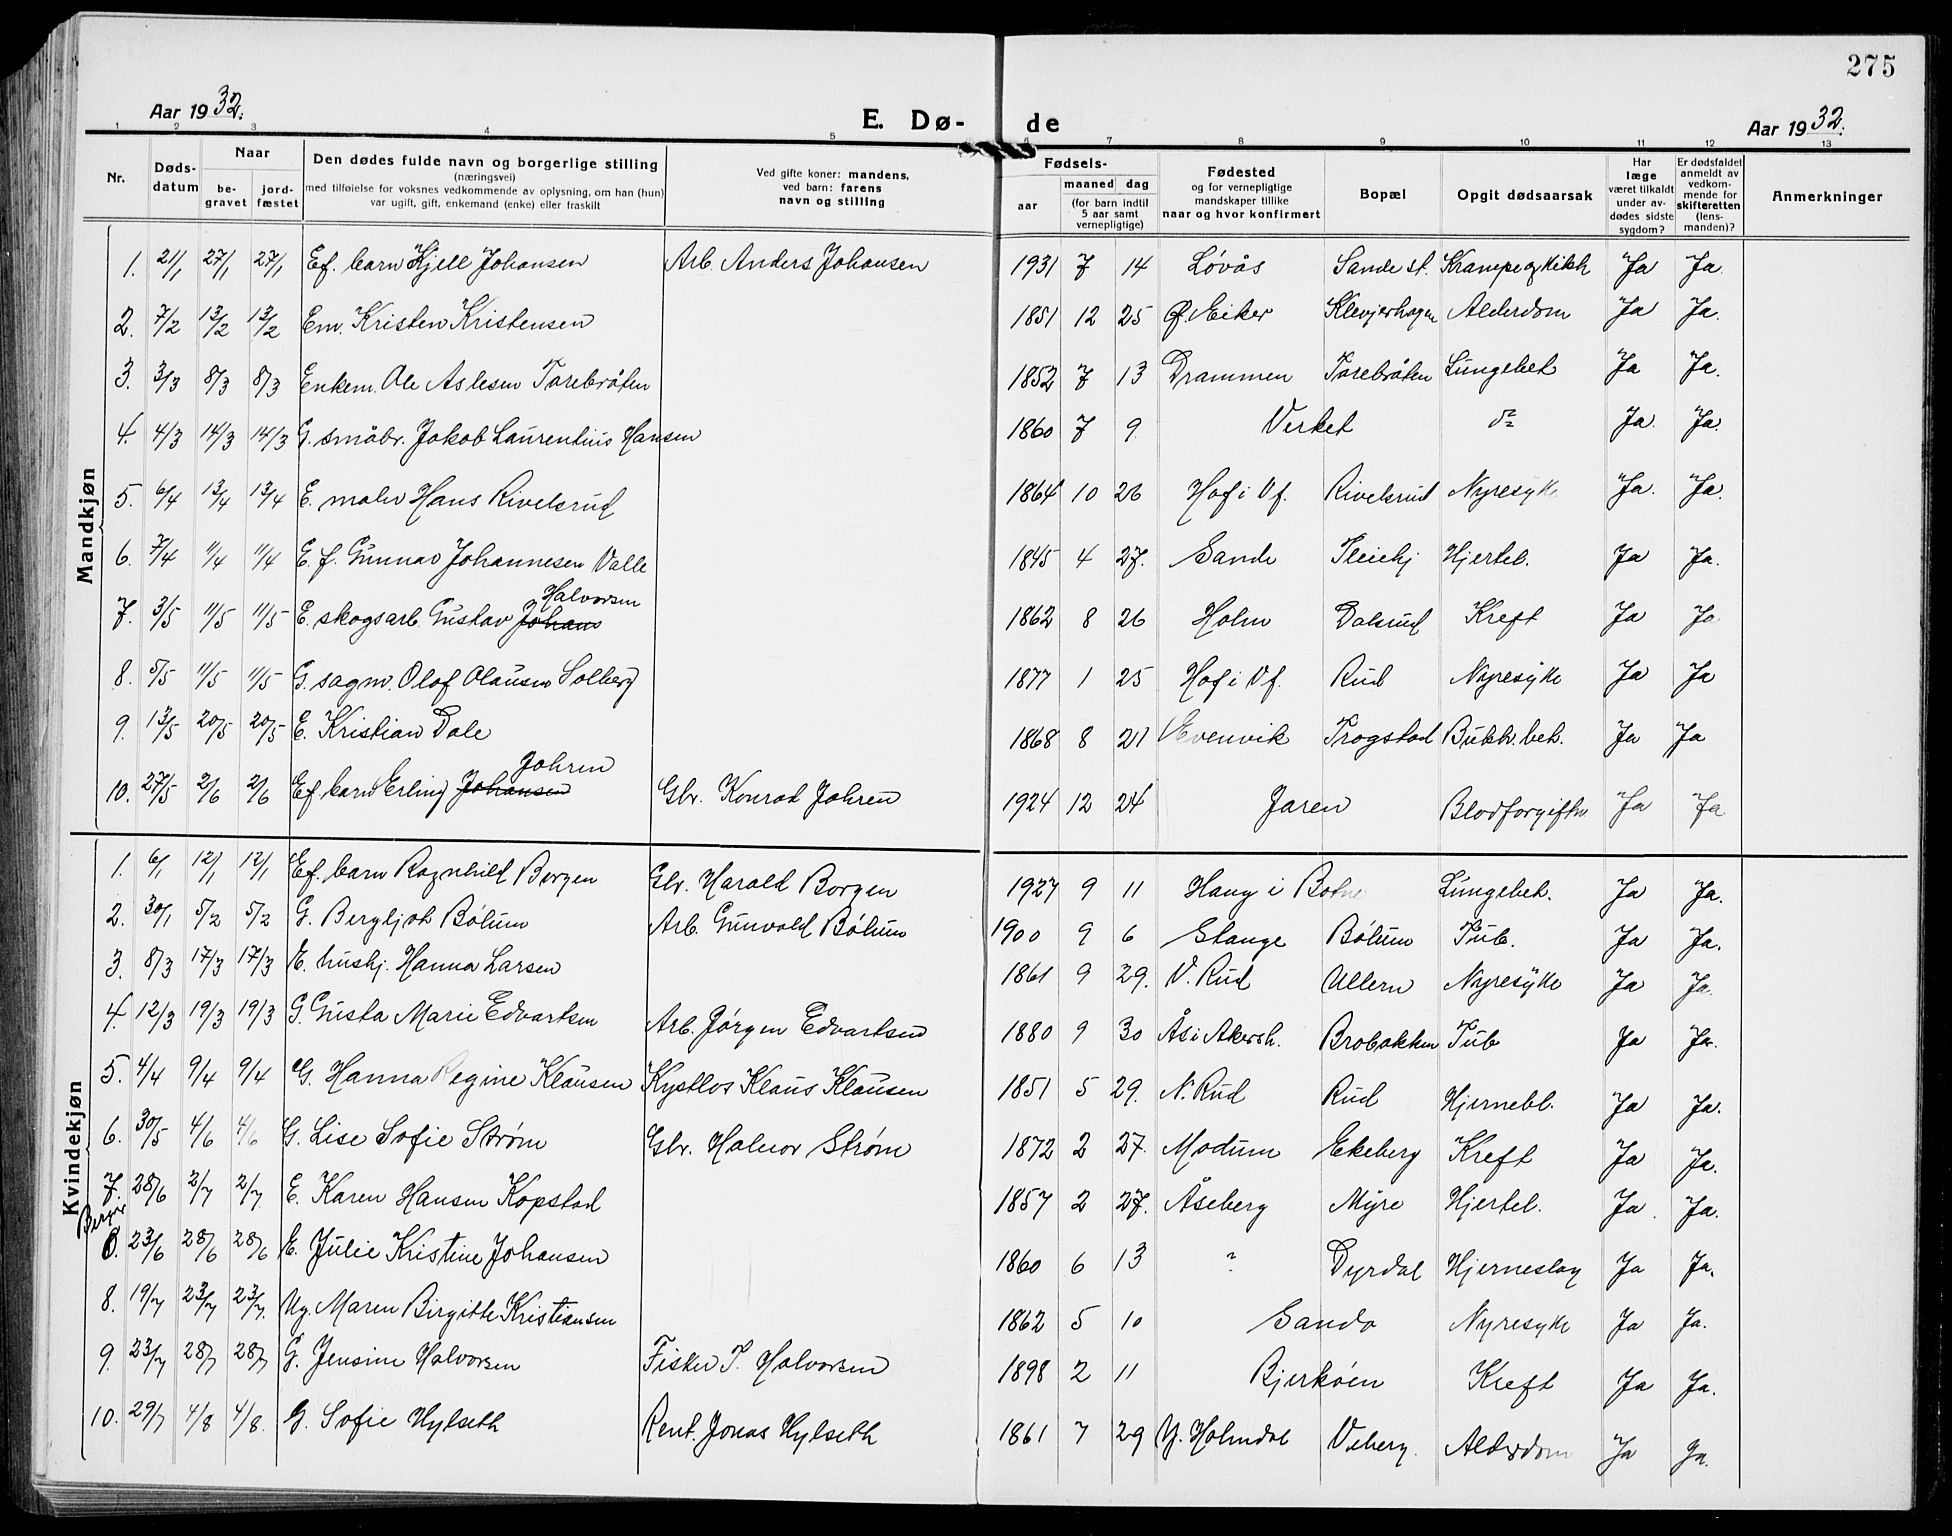 275
Aar 1932.
E. Dø- de
Aar 1932.
1 2 3 4 5 6 7 8 9 10 11 12 13
Nr. Døds-datum Naar be-gravet jord-fæstet Den dødes fulde navn og borgerlige stilling (næringsvei) med tilføielse for voksnes vedkommende av oplysning, om han (hun) var ugift, gift, enkemand (enke) eller fraskilt Ved gifte koner: mandens, ved barn: farens navn og stilling Fødsels- aar maaned dag (for barn indtil 5 aar samt vernepligtige) Fødested og for vernepligtige mandskaper tillike naar og hvor konfirmert Bopæl Opgit dødsaarsak Har læge været tilkaldt under av-dødes sidste sygdom? Er dødsfaldet anmeldt av vedkom-mende for skifteretten (lens-manden)? Anmerkninger
Mandkjøn
1. 21/1 27/1 27/1 Ef. barn Kjell Johansen Arb. Anders Johansen 1931 7 14 Løvås Sande st. Krampe og kikh Ja Ja.
2. 7/2 13/2 13/2 Em. Kristen Kristensen 1851 12 25 Ø. Eiker Klevjerhagen Alderdom Ja Ja.
3. 3/3 8/3 8/3 Enkem. Ole Aslesen Torebråten 1852 7 13 Drammen Torebråten Lungebet Ja Ja.
4. 4/3 14/3 14/3 G. småbr. Jakob Laurentius Hansen 1860 7 9 Verket do Ja. Ja.
5. 6/4 13/4 13/4 E. maler Hans Rivelsrud 1864 10 26 Hof i Vf. Rivelsrud Nyresyke Ja. Ja.
6. 7/4 11/4 11/4 E. f. Gunnar Johannesen Valle 1845 4 27. Sande Pleiehj Hjertel. Ja Ja.
7. 3/5 11/5 11/5 E. skogsarb. Gustav Johans Halvorsen 1862 8 26 Holm Dalsrud Kreft Ja Ja
8. 5/5 11/5 11/5 G. sagm. Olof Olausen Solberg 1877 1 25 Hof i Vf. Rud Nyresyke Ja Ja
9. 13/5 20/5 20/5 E. Kristian Dale 1868 8 21 Evenvik Trogstad Bukh. bet. Ja Ja
10. 27/5 2/6 2/6 Ef. barn Erling Johansen Johren Gbr. Konrad Johren 1924 12 24 Jaren Blodforgiftn Ja Ja
Kvindekjøn
1. 6/1 12/1 12/1 Ef. barn Ragnhild Borgen Gbr. Harald Borgen 1927 9 11 Haug i Botne Lungebet. Ja Ja.
2. 30/1 5/2 5/2 G. Bergljot Bølum Arb. Gunvald Bølum 1900 9 6 Stange Bølum Tub. Ja Ja.
3. 8/3 17/3 17/3 E. hushj. Hanna Larsen 1861 9 29. V. Rud Ullern Nyresyke Ja Ja.
4. 12/3 19/3 19/3 G. Gusta Marie Edvartsen Arb. Jørgen Edvartsen 1880 9 30 Ås i Akersh. Brobakken Tub Ja Ja.
5. 4/4 9/4 9/4 G. Hanna Regine Klausen Kystlos Klaus Klausen 1851 5 29. N. Rud Rud Hjernebl. Ja Ja.
6. 30/5 4/6 4/6 G. Lise Sofie Strøm Gbr. Halvor Strøm 1872 2 27. Modum Ekeberg Kreft Ja Ja.
7. 28/6 2/7 2/7 E. Karen Hansen Kopstad 1857 2 27. Åseberg Myre Hjertel. Ja Ja.
23/6 28/6 28/6 E. Julie Kristine Johansen 1860 6 13 ? Dyrdal Hjerneslag Ja Ja.
8. 19/7 23/7 23/7. Ug. Maren Birgitte Kristiansen 1862 5 10 Sande Nyresyke Ja Ja.
9. 23/7 28/7 28/7 G. Jensine Halvorsen Fisker T. Halvorsen 1898 2 11 Bjerkøen Kreft Ja Ja.
10. 29/7 4/8 4/8. G. Sofie Hylseth Rent. Jonas Hylseth 1861 7 29 Y. Holmdal Veberg. Alderdom Ja Ja.